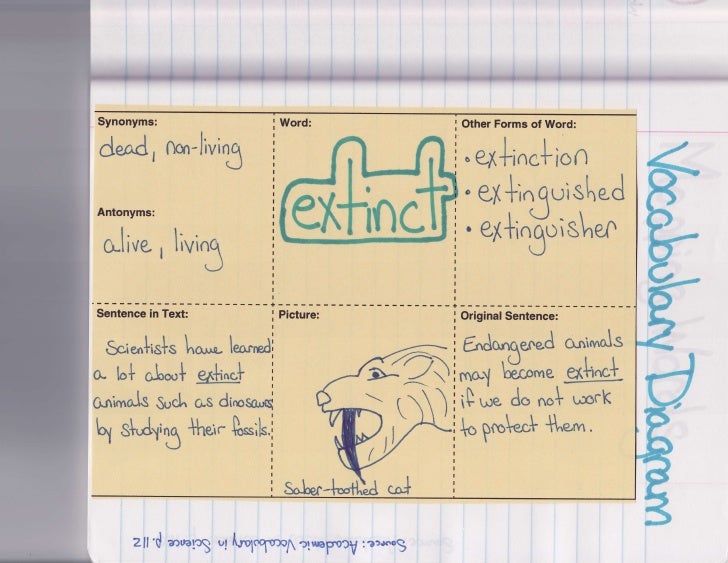 Synonyms:
dead, non-living
Antonyms:
alive, living
Word:
extinct
Other Forms of Word:
• extinction
• extinguished
• extinguisher
Sentence in Text:
Scientists have learned
a lot about extinct
animals such as dinosaurs
by studying their fossils.
Picture:
Saber-toothed cat
Original Sentence:
Endangered animals
may become extinct
if we do not work
to protect them.
Vocabulary Diagram
Source: Academic Vocabulary in Science p.112